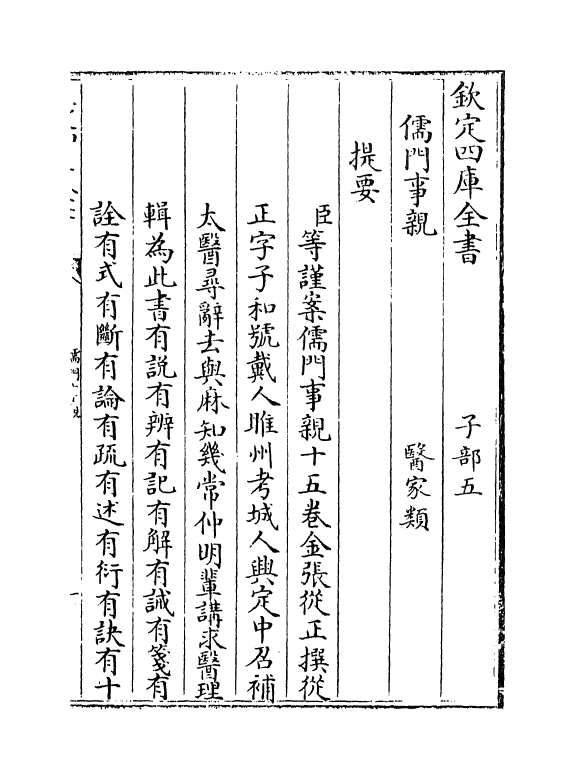 欽定四庫全書　子部五
儒門事親　醫家類
提要
臣等謹案儒門事親十五卷金張從正撰從
正字子和號戴人睢州考城人興定中召補
太醫尋辭去與麻知幾常仲明輩講求醫理
輯為此書有説有辨有記有解有誡有箋有
詮有式有斷有論有疏有述有衍有訣有十